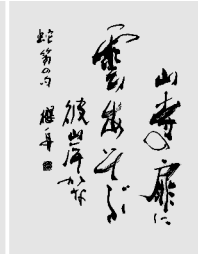 山寺の扉に
雲あそぶ
彼岸かな
蛇笏の句